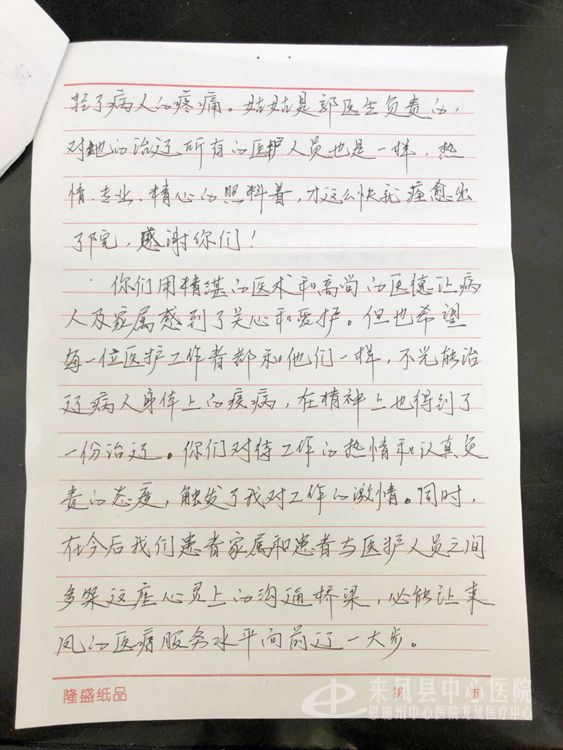 轻了病人的疼痛。姑姑是郭医生负责的，
对她的治疗所有的医护人员也是一样，热
情、专业、精心的照料着，才这么快就痊愈出
了院，感谢你们！
你们用精湛的医术和高尚的医德让病
人及家属感到了关心和爱护。但也希望
每一位医护工作者都和他们一样，不光能治
疗病人身体上的疾病，在精神上也得到了
一份治疗。你们对待工作的热情和认真负
责的态度，触发了我对工作的激情。同时，
在今后我们患者家属和患者与医护人员之间
多架这座心灵上的沟通桥梁，必能让来
凤的医疗服务水平向前迈一大步。
隆盛纸品
第 页
来凤县中心医院
恩施州中心医院龙凤医疗中心